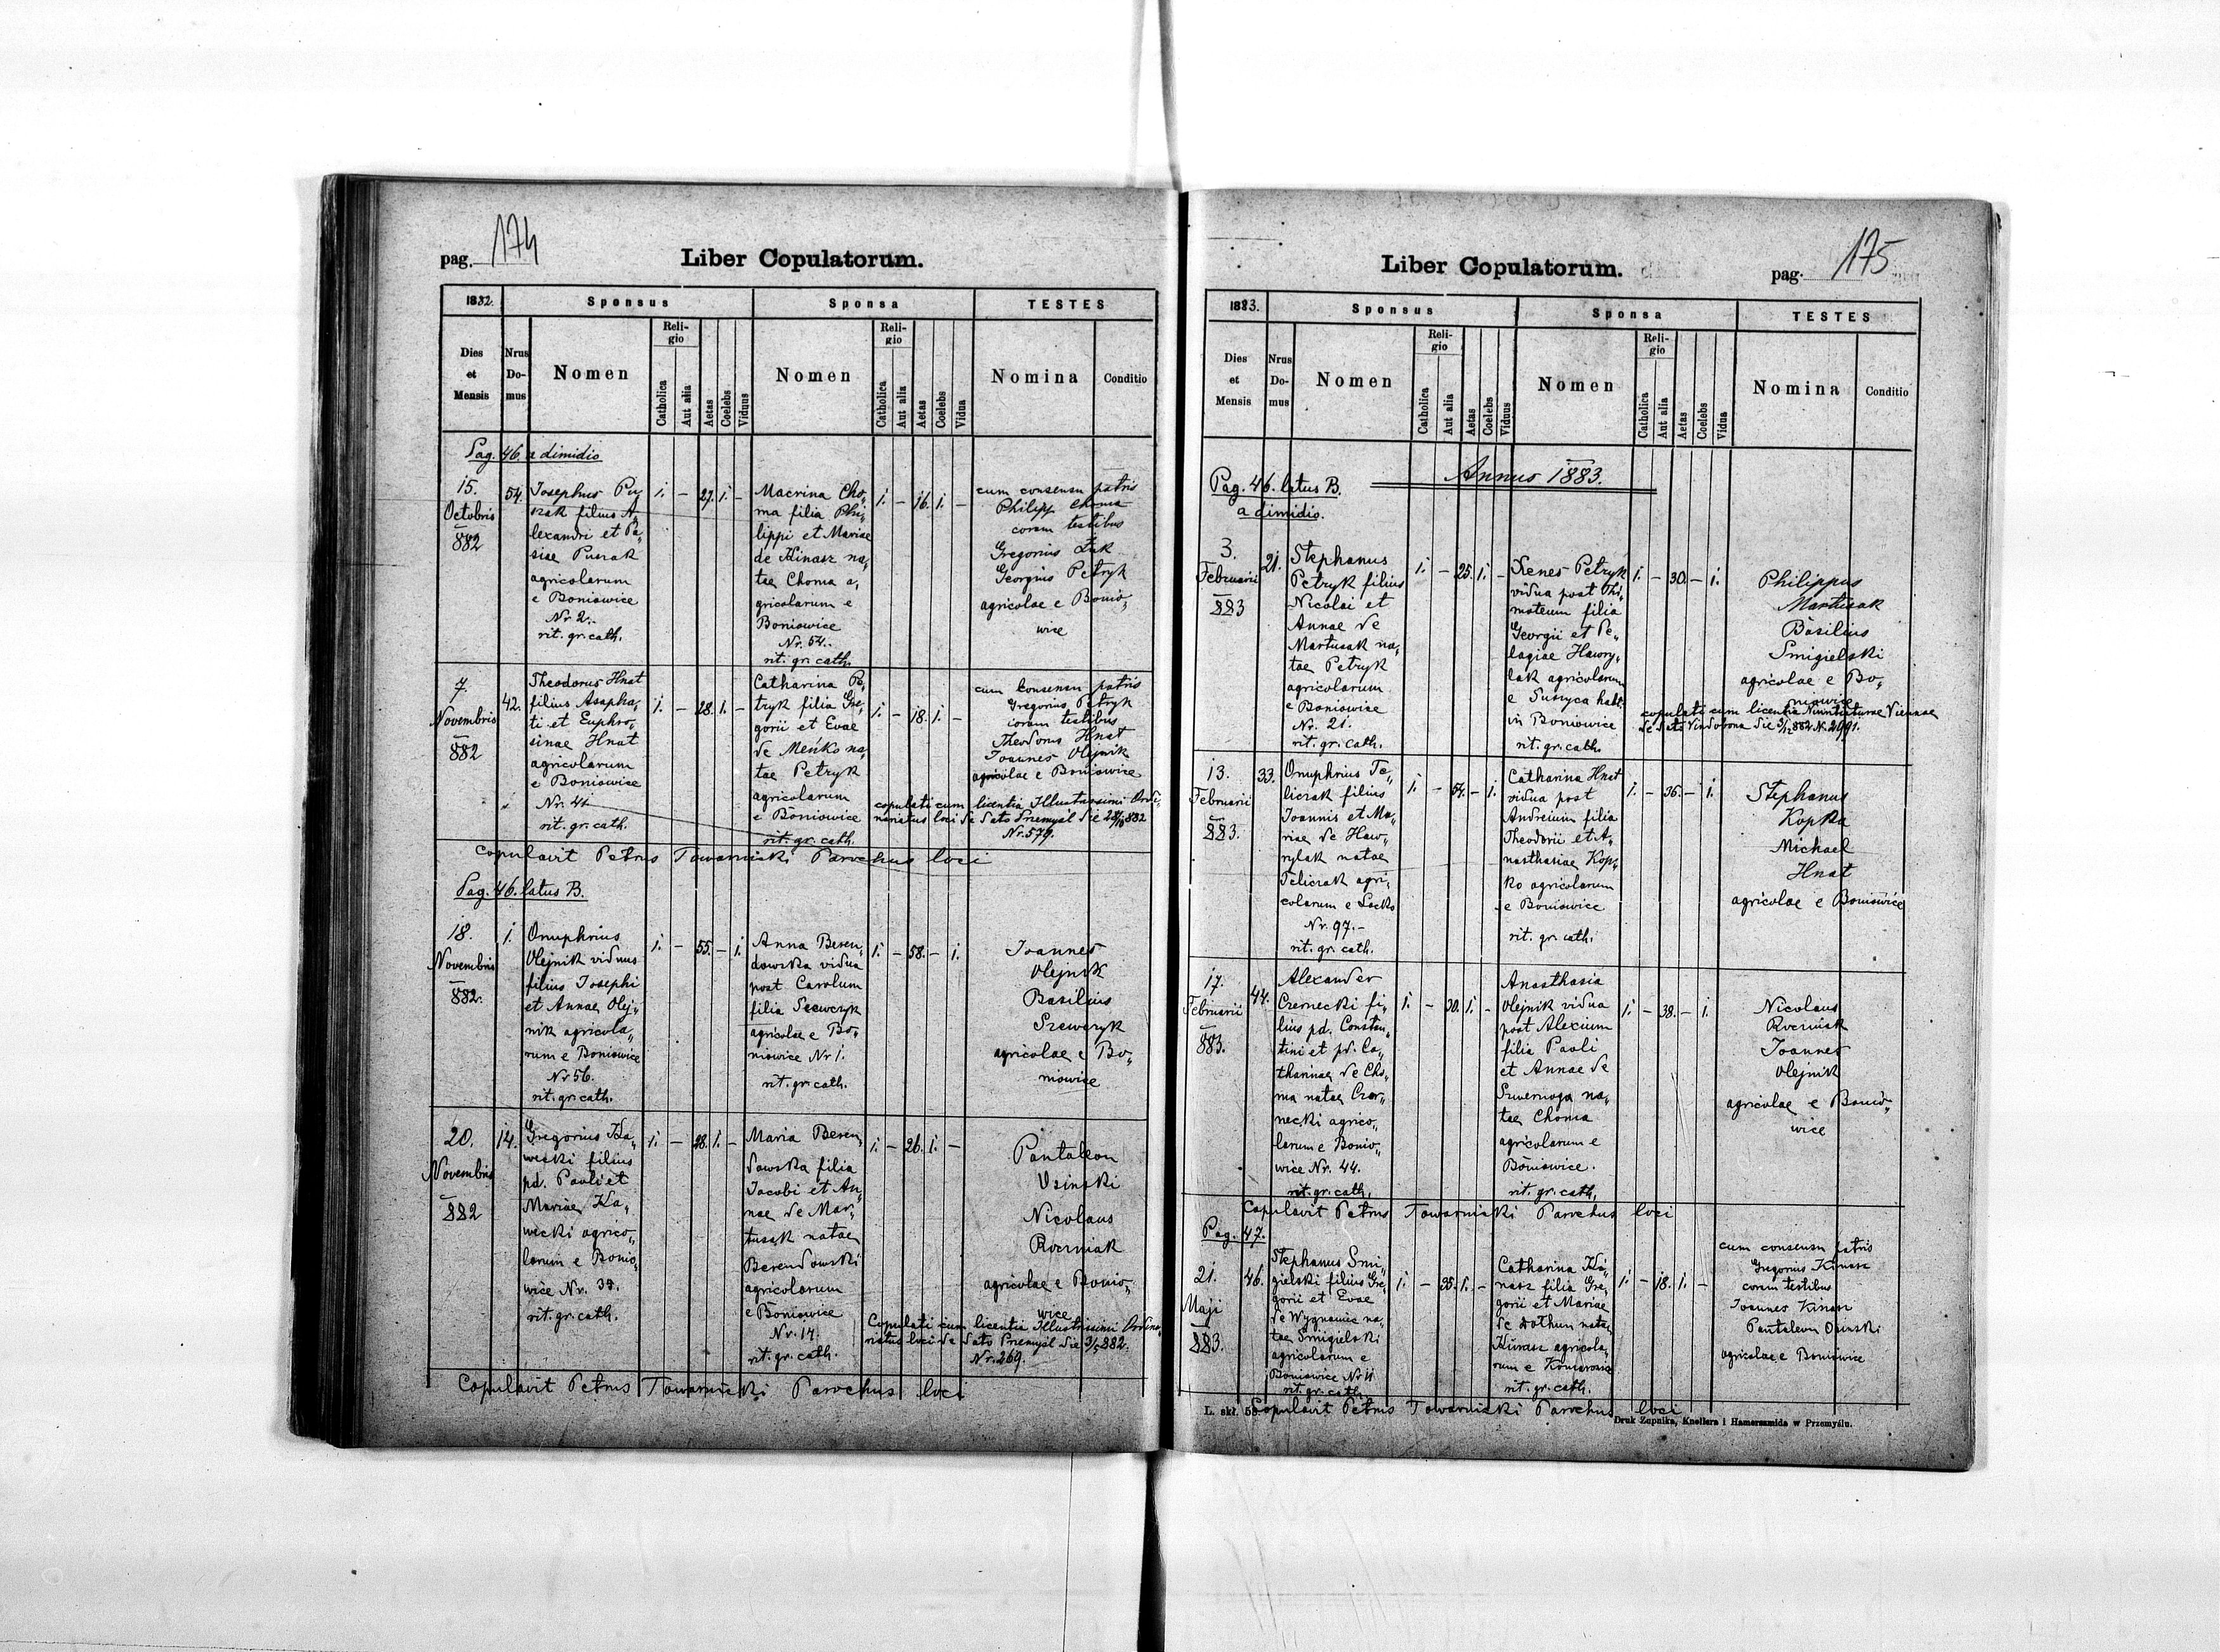 pag. 174
Liber Copulatorum.
1882.
Sponsus
Sponsa
TESTES
Dies et Mensis
Nrus Domus
Nomen
Religio
Catholica
Aut alia
Aetas
Coelebs
Viduus
Nomen
Religio
Catholica
Aut alia
Aetas
Coelebs
Vidua
Nomina
Conditio
Pag. 46. a dimidio
15.
Octobris
882
54.
Josephus Pu„
szak filius A„
lexandri et Pa„
siae Puszak
agricolarum
e Boniowice
Nr. 2.
rit. gr. cath.
1. – 27. 1. –
Macrina Cho„
ma filia Phi„
lippi et Mariae
de Kinasz na„
tae Choma a„
gricolarum e
Boniowice
Nr. 54.
rit. gr. cath.
1. – 16. 1. –
cum consensu patris
Philipp Choma
coram testibus
Gregorius Żuk
Georgius Petryk
agricolae e Bonio„
wice
7.
Novembris
882
42.
Theodorus Hnat
filius Asapha„
ti et Euphro„
sinae Hnat
agricolarum
e Boniowice
Nr. 42
rit. gr. cath.
1. – 28. 1. –
Catharina Pe„
tryk filia Gre„
gorii et Evae
de Meńko na„
tae Petryk
agricolarum
e Boniowice
rit. gr. cath.
1. – 18. 1. –
cum consensu patris
Gregorius Petryk
coram testibus
Theodorus Hnat
Joannes Olejnik
agricolae e Boniowice
copulati cum licentia Illustrissimi Ordi„
nariatus loci de dato Przemysl die 882
Nr. 579.
Copulavit Petrus Towarnicki Parochus loci
Pag. 46. latus B.
18.
Novembris
882.
1.
Onuphrius
Olejnik viduus
filius Josephi
et Annae Olej„
nik agricola„
rum e Boniowice
Nr 56.
rit. gr. cath.
1. – 55. – 1.
Anna Beren„
dowska vidua
post Carolum
filia Szewczyk
agricolae e Bo„
niowice Nr 1.
rit. gr. cath.
1. – 58. – 1.
Joannes
Olejnik
Basilius
Szewczyk
agricolae e Bo„
niowice
20.
Novembris
882
14.
Gregorius Ka„
wecki filius
pd. Pauli et
Mariae Ka„
wecki agrico„
larum e Bonio„
wice Nr. 37.
rit. gr. cath.
1. – 28. 1. –
Maria Beren„
dowska filia
Jacobi et An„
nae de Mar„
tuszk natae
Berendowski
agricolarum
e Boniowice
Nr. 14.
rit. gr. cath.
1. – 26. 1. –
Pantaleon
Usinski
Nicolaus
Rverniak
agricolae e Bonio„
wice
Copulati cum licentia Illustrissimi Ordina„
riatus loci de dato Przemysl die 882.
Nr. 269.
Copulavit Petrus Towarnicki Parochus loci
Liber Copulatorum.
pag. 175
1883.
Sponsus
Sponsa
TESTES
Dies et Mensis
Nrus Domus
Nomen
Religio
Catholica
Aut alia
Aetas
Coelebs
Viduus
Nomen
Religio
Catholica
Aut alia
Aetas
Coelebs
Vidua
Nomina
Conditio
Annus 1883.
Pag. 46. latus B.
a dimidio.
3.
Februarii
883
21.
Stephanus
Petryk filius
Nicolai et
Annae de
Martuszak na„
tae Petryk
agricolarum
e Boniowice
Nr. 21.
rit. gr. cath.
1. – 25. 1. –
Xenes Petryk
vidua post Thi„
moteum filia
Georgii et Pe„
lagiae Hawry„
lak agricolarum
e Suszyca habt.
in Boniowice
rit. gr. cath.
1. – 30. – 1.
Philippus
Martuszak
Basilius
Smigielski
agricolae e Bo„
niowice
copulati cum licentia Nuntiaturae Viennae
de dato Vindobona die 3/12 882 Nr. 2991.
13.
Februarii
883.
33.
Onuphrius Te„
liczak filius
Joannis et Ma„
riae de Haw„
rylak natae
Teliczak agri„
colarum e Lacko
Nr. 97.
rit. gr. cath.
1. – 54. – 1.
Catharina Hnat
vidua post
Andreium filia
Theodorii et A„
nasthasiae Kop„
ko agricolarum
e Boniowice
rit. gr. cath.
1. – 36. – 1.
Stephanus
Kopka
Michael
Hnat
agricolae e Boniowice
17.
Februarii
883.
44.
Alexander
Czernecki fi„
lius pd. Constan„
tini et pd. Ca„
tharinae de Cho„
ma natae Czar„
necki agrico„
larum e Bonio„
wice Nr. 44.
rit. gr. cath.
1. – 30. 1. –
Anasthasia
Olejnik vidua
post Alexium
filia Pauli
et Annae de
na„
tae Choma
agricolarum e
Boniowice.
rit. gr. cath.
1. – 38. – 1.
Nicolaus
Rverniak
Joannes
Olejnik
agricolae e Bonio„
wice
Copulavit Petrus Towarnicki Parochus loci
Pag. 47.
21.
Maji
883.
46.
Stephanus Smi„
gielski filius Gre„
gorii et Evae
de Wygnaniec na„
tae Smigielski
agricolarum e
Boniowice Nr 11
rit. gr. cath.
1. – 35. 1. –
Catharina Ki„
nasz filia Gre„
gorii et Mariae
de natae
Kinasz agricola„
rum e
rit. gr. cath.
1. – 18. 1. –
cum consensu patris
Gregorius Kinasz
coram testibus
Joannes Kinasz
Pantaleon Osinski
agricolae e Boniowice
Copulavit Petrus Towarnicki Parochus loci
L. skł. 59
Druk Żupnika, Knollera i Hamerszmida w Przemyślu.